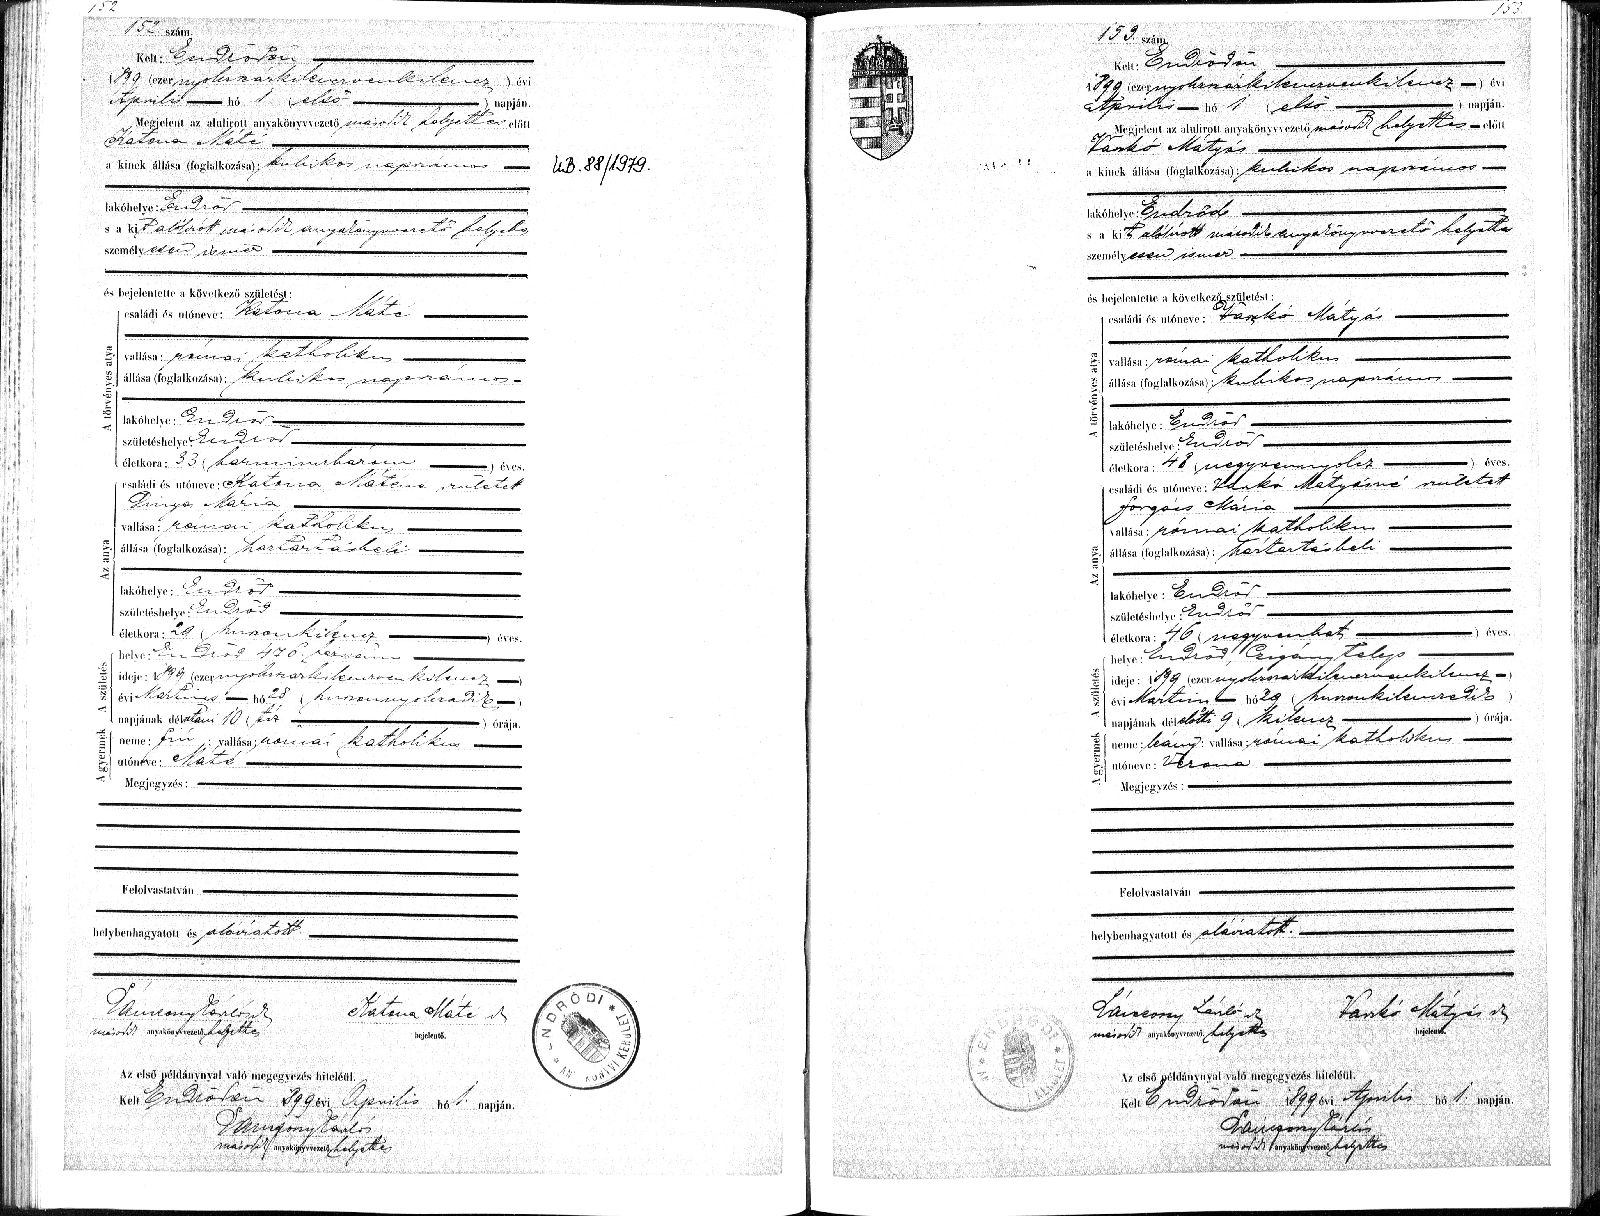 152
152 szám.
Kelt: Endrődön
1899 (ezer nyolczszázkilenczvenkilencz) évi
Április hó 1 (első) napján.
Megjelent az alulirott anyakönyvvezető második helyettes előtt
Katona Máté
a kinek állása (foglalkozása): kubikos napszámos
lakóhelye: Endrőd
s a kit alólirott második anyakönyvvezető helyettes
személyesen ismer
és bejelentette a következő születést:
A törvényes atya
családi és utóneve: Katona Máté
vallása: római katholikus
állása (foglalkozása): kubikos napszámos
lakóhelye: Endrőd
születéshelye: Endrőd
életkora: 33 (harminczhárom) éves.
Az anya
családi és utóneve: Katona Máténé született
Dinya Mária
vallása: római katholikus
állása (foglalkozása): háztartásbeli
lakóhelye: Endrőd
születéshelye: Endrőd
életkora: 29 (huszonkilencz) éves.
A születés
helye: Endrőd 476 házszám
ideje: 1899 (ezer nyolczszázkilenczvenkilencz)
évi Martius hó 28 (huszonnyolczadik)
napjának délutáni 10 (tíz) órája.
A gyermek
neme: fiú; vallása: római katholikus
utóneve: Máté
Megjegyzés:
Felolvastatván
helybenhagyatott és aláiratott.
második anyakönyvvezető helyettes
Katona Máté
bejelentő.
ENDRŐDI
Az első példánynyal való megegyezés hiteléül.
Kelt Endrődön 899 évi Április hó 1. napján.
második anyakönyvvezető helyettes
88/1979.
153
153 szám.
Kelt: Endrődön
1899 (ezer nyolczszázkilenczvenkilencz) évi
Április hó 1 (első) napján.
Megjelent az alulirott anyakönyvvezető második helyettes előtt
Vaskó Mátyás
a kinek állása (foglalkozása): kubikos napszámos
lakóhelye: Endrőd
s a kit alólirott második anyakönyvvezető helyettes
személyesen ismer
és bejelentette a következő születést:
A törvényes atya
családi és utóneve: Vaskó Mátyás
vallása: római katholikus
állása (foglalkozása): kubikos napszámos
lakóhelye: Endrőd
születéshelye: Endrőd
életkora: 48 (negyvennyolcz) éves.
Az anya
családi és utóneve: Vaskó Mátyásné született
forgács Mária
vallása: római katholikus
állása (foglalkozása): háztartásbeli
lakóhelye: Endrőd
születéshelye: Endrőd
életkora: 46 (negyvenhat) éves.
A születés
helye: Endrőd, Czigány telep
ideje: 1899 (ezer nyolczszázkilenczvenkilencz)
évi Martius hó 29 (huszonkilenczedik)
napjának délelőtti 9 (kilencz) órája.
A gyermek
neme: leány; vallása: római katholikus
utóneve: Verona
Megjegyzés:
Felolvastatván
helybenhagyatott és aláiratott.
második anyakönyvvezető helyettes
Vaskó Mátyás
bejelentő.
ENDRŐDI
Az első példánynyal való megegyezés hiteléül.
Kelt Endrődön 1899 évi Április hó 1. napján.
második anyakönyvvezető helyettes